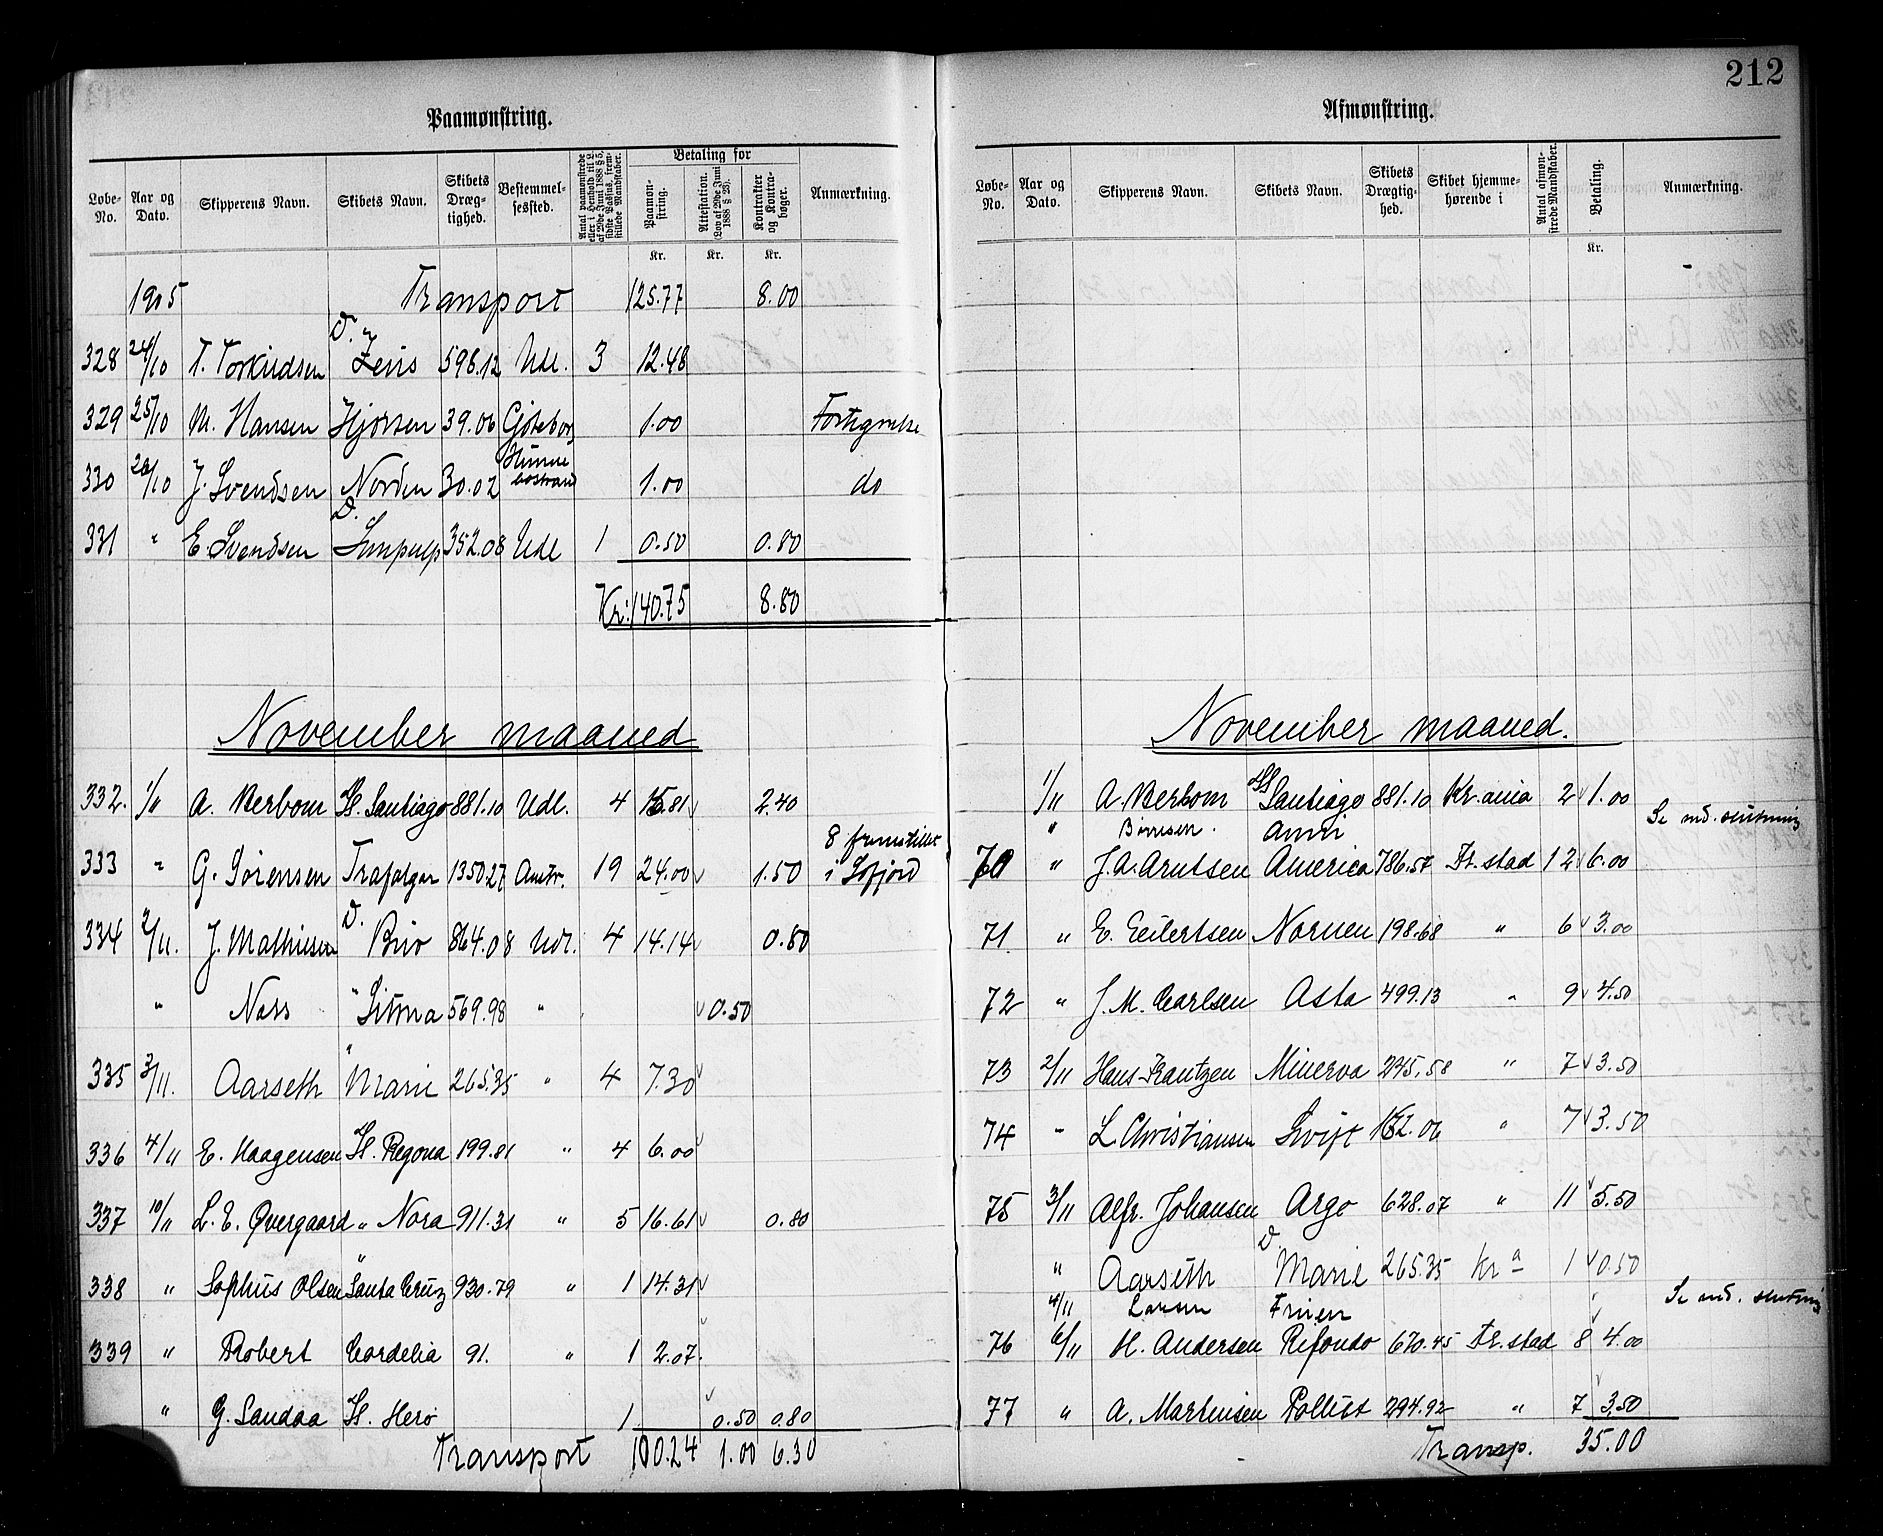 212
Paamønstring.
Løbe-No. Aar og Dato. Skipperens Navn. Skibets Navn. Skibets Dræg-tighed. Bestemmel-sessted. Antal paamønstrede eller i Henhold til L. af 29de Juni 1888 § 5, sidste Passus, frem-stillede Mandskaber. Betaling for Paamøn-string. Attestation. (Lov af 29de Juni 1888 § 28). Kontrakter og Kontra-bøger. Anmærkning.
Kr. Kr. Kr.
1905 Transport 125.77 8.00
328 24/10 T. Torkildsen D. Zeus 596.12 Udl. 3 12.48
329 25/10 M. Hansen Hjorten 39.06 Gøteborg 1.00
330 28/10 J. Svendsen Norden 30.02 Hunnebostrand 1.00 do
331 " E. Svendsen D. 352.08 Udl 1 0.50 0.80
Kr: 140.75 8.80
November maaned
332. 1/11 A. Berbom St. Santiago 881.10 Udl. 4 15.81 2.40
333 " G. Sörensen Trafalgar 1350.27 Austr. 19 24.00 1.50 8 fremstillet i
334 2/11. J. Mathiesen D. Brio 864.08 Udl. 4 14.14 0.80
" Nass " Sitona 569.98 " 0.50
335 3/11. Aarseth " Marie 265.35 " 4 7.30
336 4/11 E. Haagensen St. Regona 199.81 " 4 6.00
337 10/11 L. E. Qvergaard " Nora 911.31 " 5 16.61 0.80
338 " Sophus Olsen " Santa Cruz 930.79 " 1 14.31
339 " Robert Cordelia 91. " 1 2.07
" G. Sandaa St. Hero 1 0.50 0.80
Transport 100.24 1.00 6.30
Afmønstring.
Løbe-No. Aar og Dato. Skipperens Navn. Skibets Navn. Skibets Drægtig-hed. Skibet hjemme-hørende i Antal afmøn-strede Mandskaber. Betaling. Anmærkning.
Kr.
November maaned.
1/11 A. Berbom SS Santiago 881.10 Kr.ania 2 1.00
" Börresen. Anni Se md. slutning
70 " J. A. Arntsen America 786.57 Fr.stad 12 6.00
71 " E. Eilertsen Nornen 198.68 " 6 3.00
72 " J. M. Carlsen Asta 499.13 " 9 4.50
73 2/11 Hans Frantzen Minerva 295.58 " 7 3.50
74 " L. Christiansen Swift 162.06 " 7 3.50
75 3/11 Alfr. Johansen Argo 628.07 " 11 5.50
" Aarseth D. Marie 265.35 Kra 1 0.50
4/11 Larsen Se md. slutning
76 6/11 H. Andersen Rifondo 670.45 Fr.stad 8 4.00
77 " A. Martinsen Pollux 294.92 " 7 3.50
Transp. 35.00